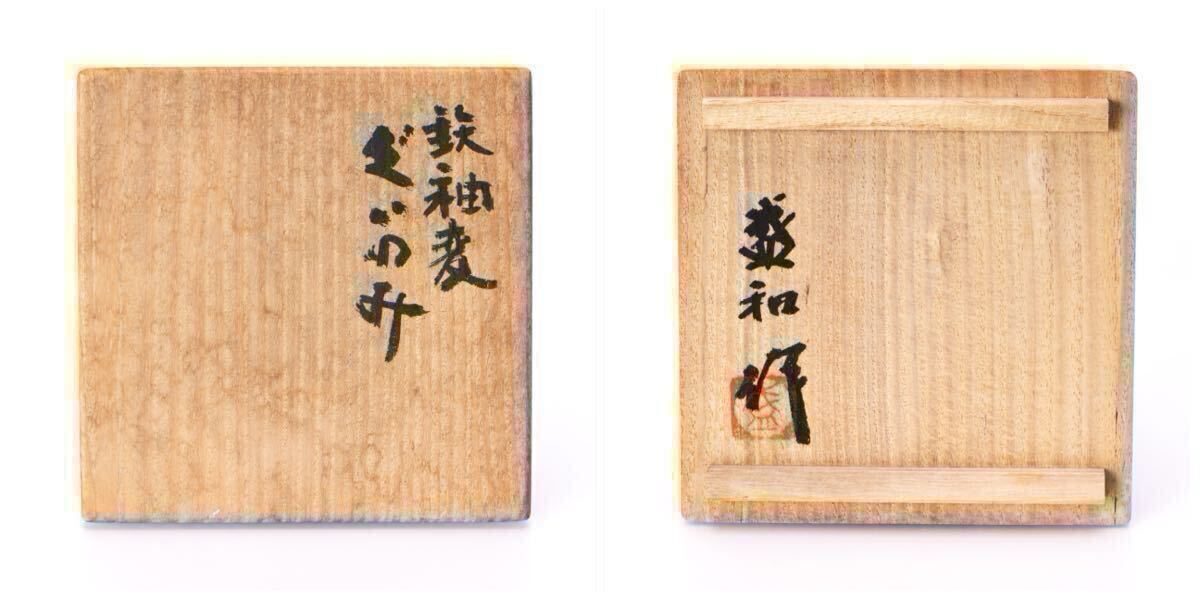 鉄釉変
ぐいのみ
盛和作